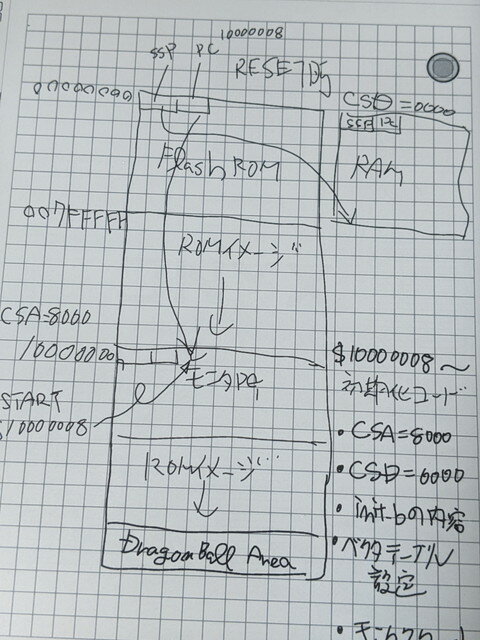 10000008
SSP PC
RESET時
00000000
CSD=0000
SSP PC
Flash ROM
RAM
007FFFFF
ROMイメージ
CSA=8000
10000000
$10000008〜
初期化コード
モニタPG
START
10000008
・CSA=8000
・CSD=6000
ROMイメージ
・init-bの内容
・ベクターテーブル
設定
DragonBall Area